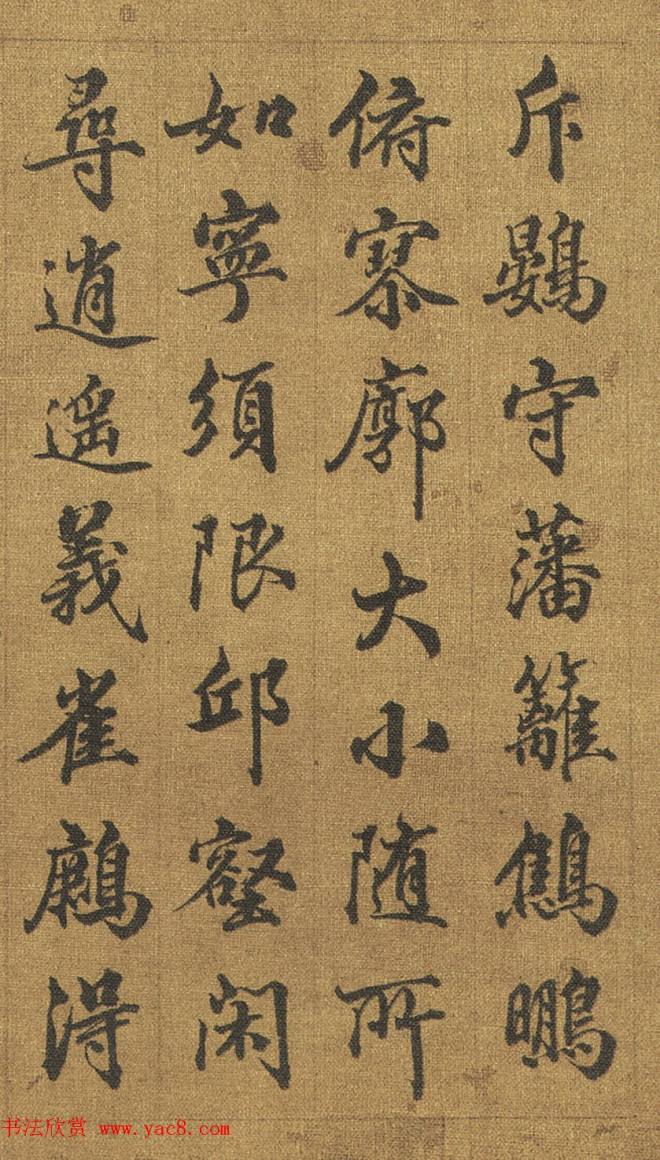 斥鷃守藩籬鷦鵬
俯寥廓大小隨所
如寧須限邱壑閑
尋逍遥義雀鷃得
书法欣赏 www.yac8.com